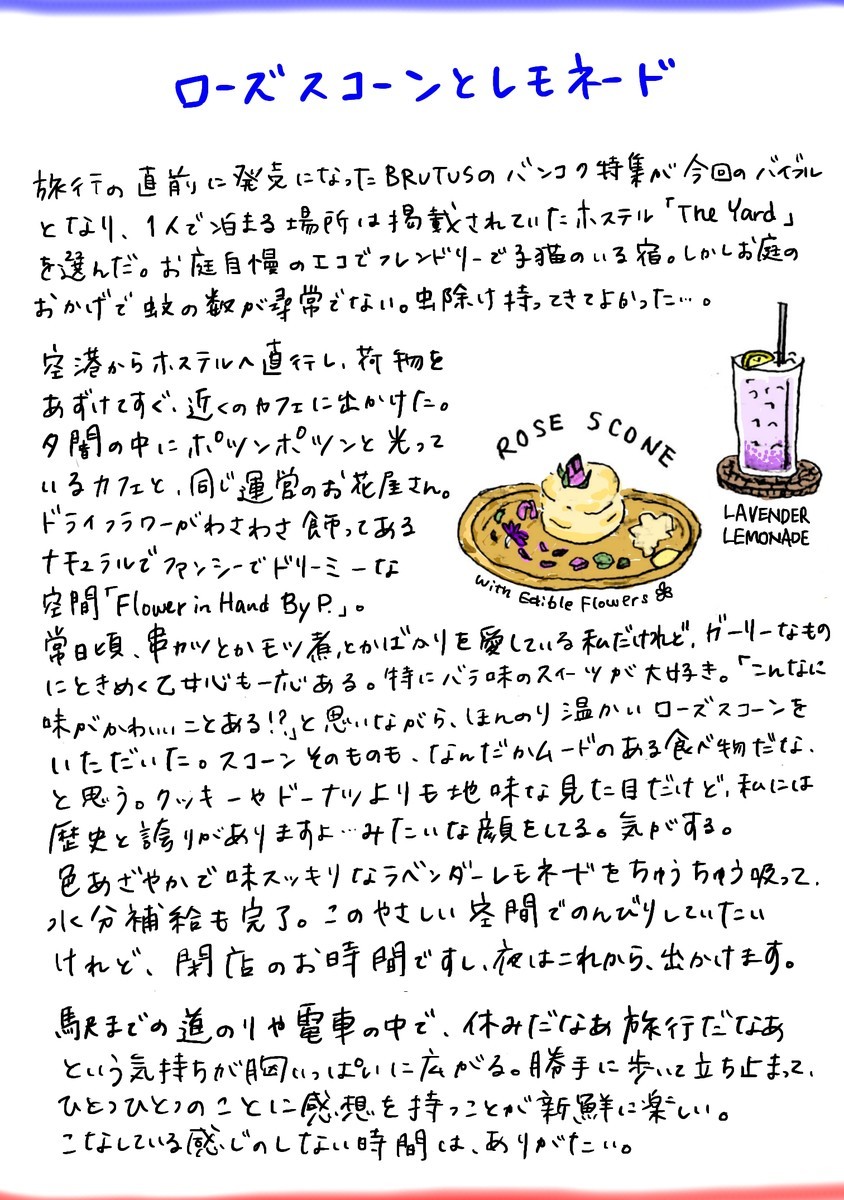 ローズスコーンとレモネード
旅行の直前に発売になったBRUTUSのバンコク特集が今回のバイブル
となり、1人で泊まる場所は掲載されていたホステル「The Yard」
を選んだ。お庭自慢のエコでフレンドリーで子猫のいる宿。しかしお庭の
おかげで蚊の数が尋常でない。虫除け持ってきてよかった…。
空港からホステルへ直行し、荷物を
あずけてすぐ、近くのカフェに出かけた。
夕闇の中にポツンポツンと光って
いるカフェと、同じ運営のお花屋さん。
ドライフラワーがわさわさ飾ってある
ナチュラルでファンシーでドリーミーな
空間「Flower in Hand By P.」。
ROSE SCONE
with Edible Flowers
LAVENDER
LEMONADE
常日頃、串カツとかモツ煮とかばかりを愛している私だけれど、ガーリーなもの
にときめく乙女心も一応ある。特にバラ味のスイーツが大好き。「こんなに
味がかわいいことある!?」と思いながら、ほんのり温かいローズスコーンを
いただいた。スコーンそのものも、なんだかムードのある食べ物だな、
と思う。クッキーやドーナツよりも地味な見た目だけど、私には
歴史と誇りがありますよ…みたいな顔をしてる。気がする。
色あざやかで味スッキリなラベンダーレモネードをちゅうちゅう吸って、
水分補給も完了。このやさしい空間でのんびりしていたい
けれど、閉店のお時間ですし、夜はこれから、出かけます。
駅までの道のりや電車の中で、休みだなあ旅行だなあ
という気持ちが胸いっぱいに広がる。勝手に歩いて立ち止まって、
ひとつひとつのことに感想を持つことが新鮮に楽しい。
こなしている感じのしない時間は、ありがたい。